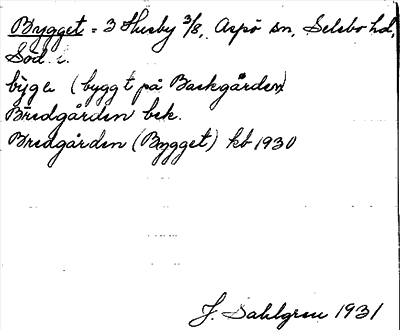 Bygget = 3 Husby 3/8, Aspö sn, Selebo hd,
Söd. l.
býge (byggt på Backgården)
Bredgården bek.
Bredgården (Bygget) kb 1930
J. Sahlgren 1931